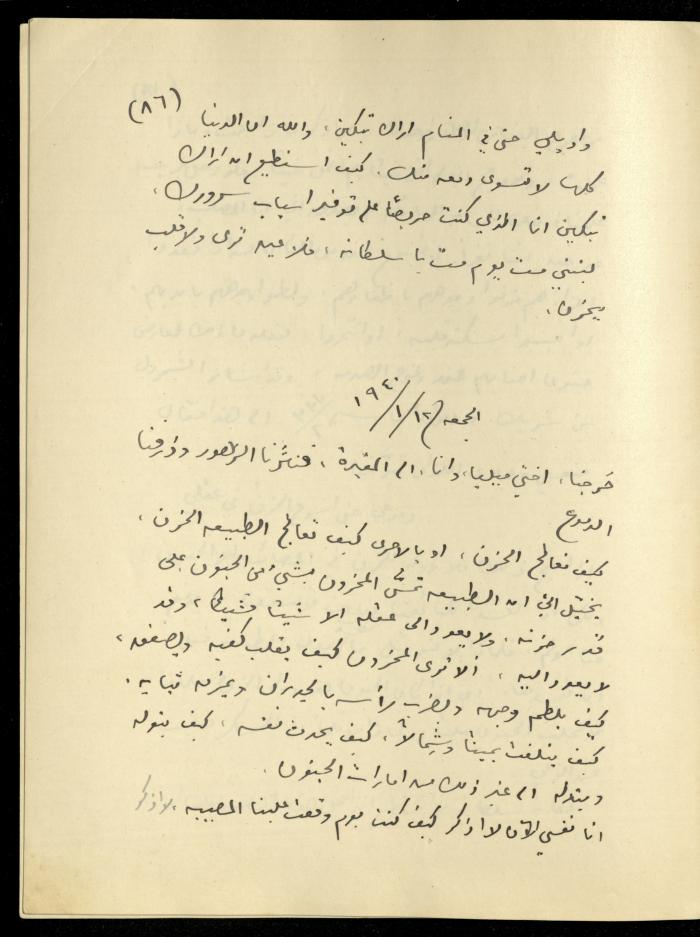 (٨٦)
واويلي حتى في المنام اراك تبكين، والله ان الدنيا
كلها لا تسوى دمعه منك. كيف استطيع ان اراك
تبكين انا الذي كنت حريصًا على توفير اسباب سرورك،
ليتني مت يوم مت يا سلطانه، فلا عين ترى ولا قلب
يحزن.
الجمعه ١٢/١/١٩٤٠
خرجنا، اختي ميليا، وانا، الى المقبرة، فنثرنا الزهور وذرفنا
الدموع
كيف نعالج الحزن، او بالاحرى كيف تعالج الطبيعه الحزن،
يخيّل اليّ ان الطبيعه تمسّ المحزون بشيء من الجنون على
قدر حزنه، ولا يعود الى عقله الا شيئًا فشيئًا، وقد
لا يعود اليه، ألا ترى المحزون كيف يقلب كفيه ويصفقه،
كيف يلطم وجهه ويضرب رأسه بالجدران ويمزق ثيابه.
كيف يتلفت يمينًا وشمالاً، كيف يحدث نفسه، كيف يتوله
ويتدله الى غير ذلك من امارات الجنون.
انا نفسي الآن لا اذكر كيف كنت يوم وقعت علينا المصيبه، لا اذكر